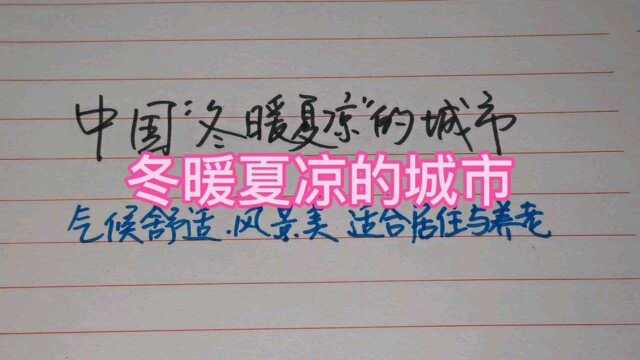 中国“冬暖夏凉”的城市
冬暖夏凉的城市
气候舒适.风景美 适合居住与养老